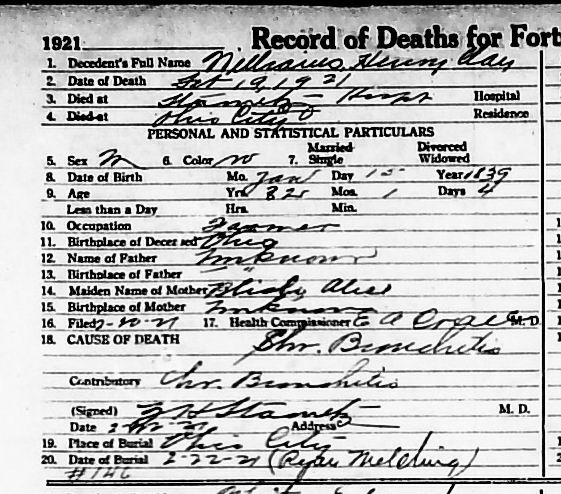 1921. Record of Deaths for Fort
1. Decedent's Full Name Williams, Henry Clay
2. Date of Death 19, 1921
3. Died at Stametz Hospt Hospital
4. Died at Ohio City Residence
PERSONAL AND STATISTICAL PARTICULARS
5. Sex M 6. Color W 7. Married Single Divorced Widowed
8. Date of Birth Mo. Jan Day 15 Year 1839
9. Age Yrs. 82 Mos. 1 Days 4
Less than a Day Hrs. Min.
10. Occupation Farmer
11. Birthplace of Deceased Ohio
12. Name of Father Unknown
13. Birthplace of Father "
14. Maiden Name of Mother Alice
15. Birthplace of Mother Unknown
16. Filed 2-20-21 17. Health Commissioner E A M. D.
18. CAUSE OF DEATH Chr. Bronchitis
Contributory Chr. Bronchitis
(Signed) Stametz M. D.
Date Address
19. Place of Burial Ohio City
20. Date of Burial 2-22-21 (Ryan Melching)
#146